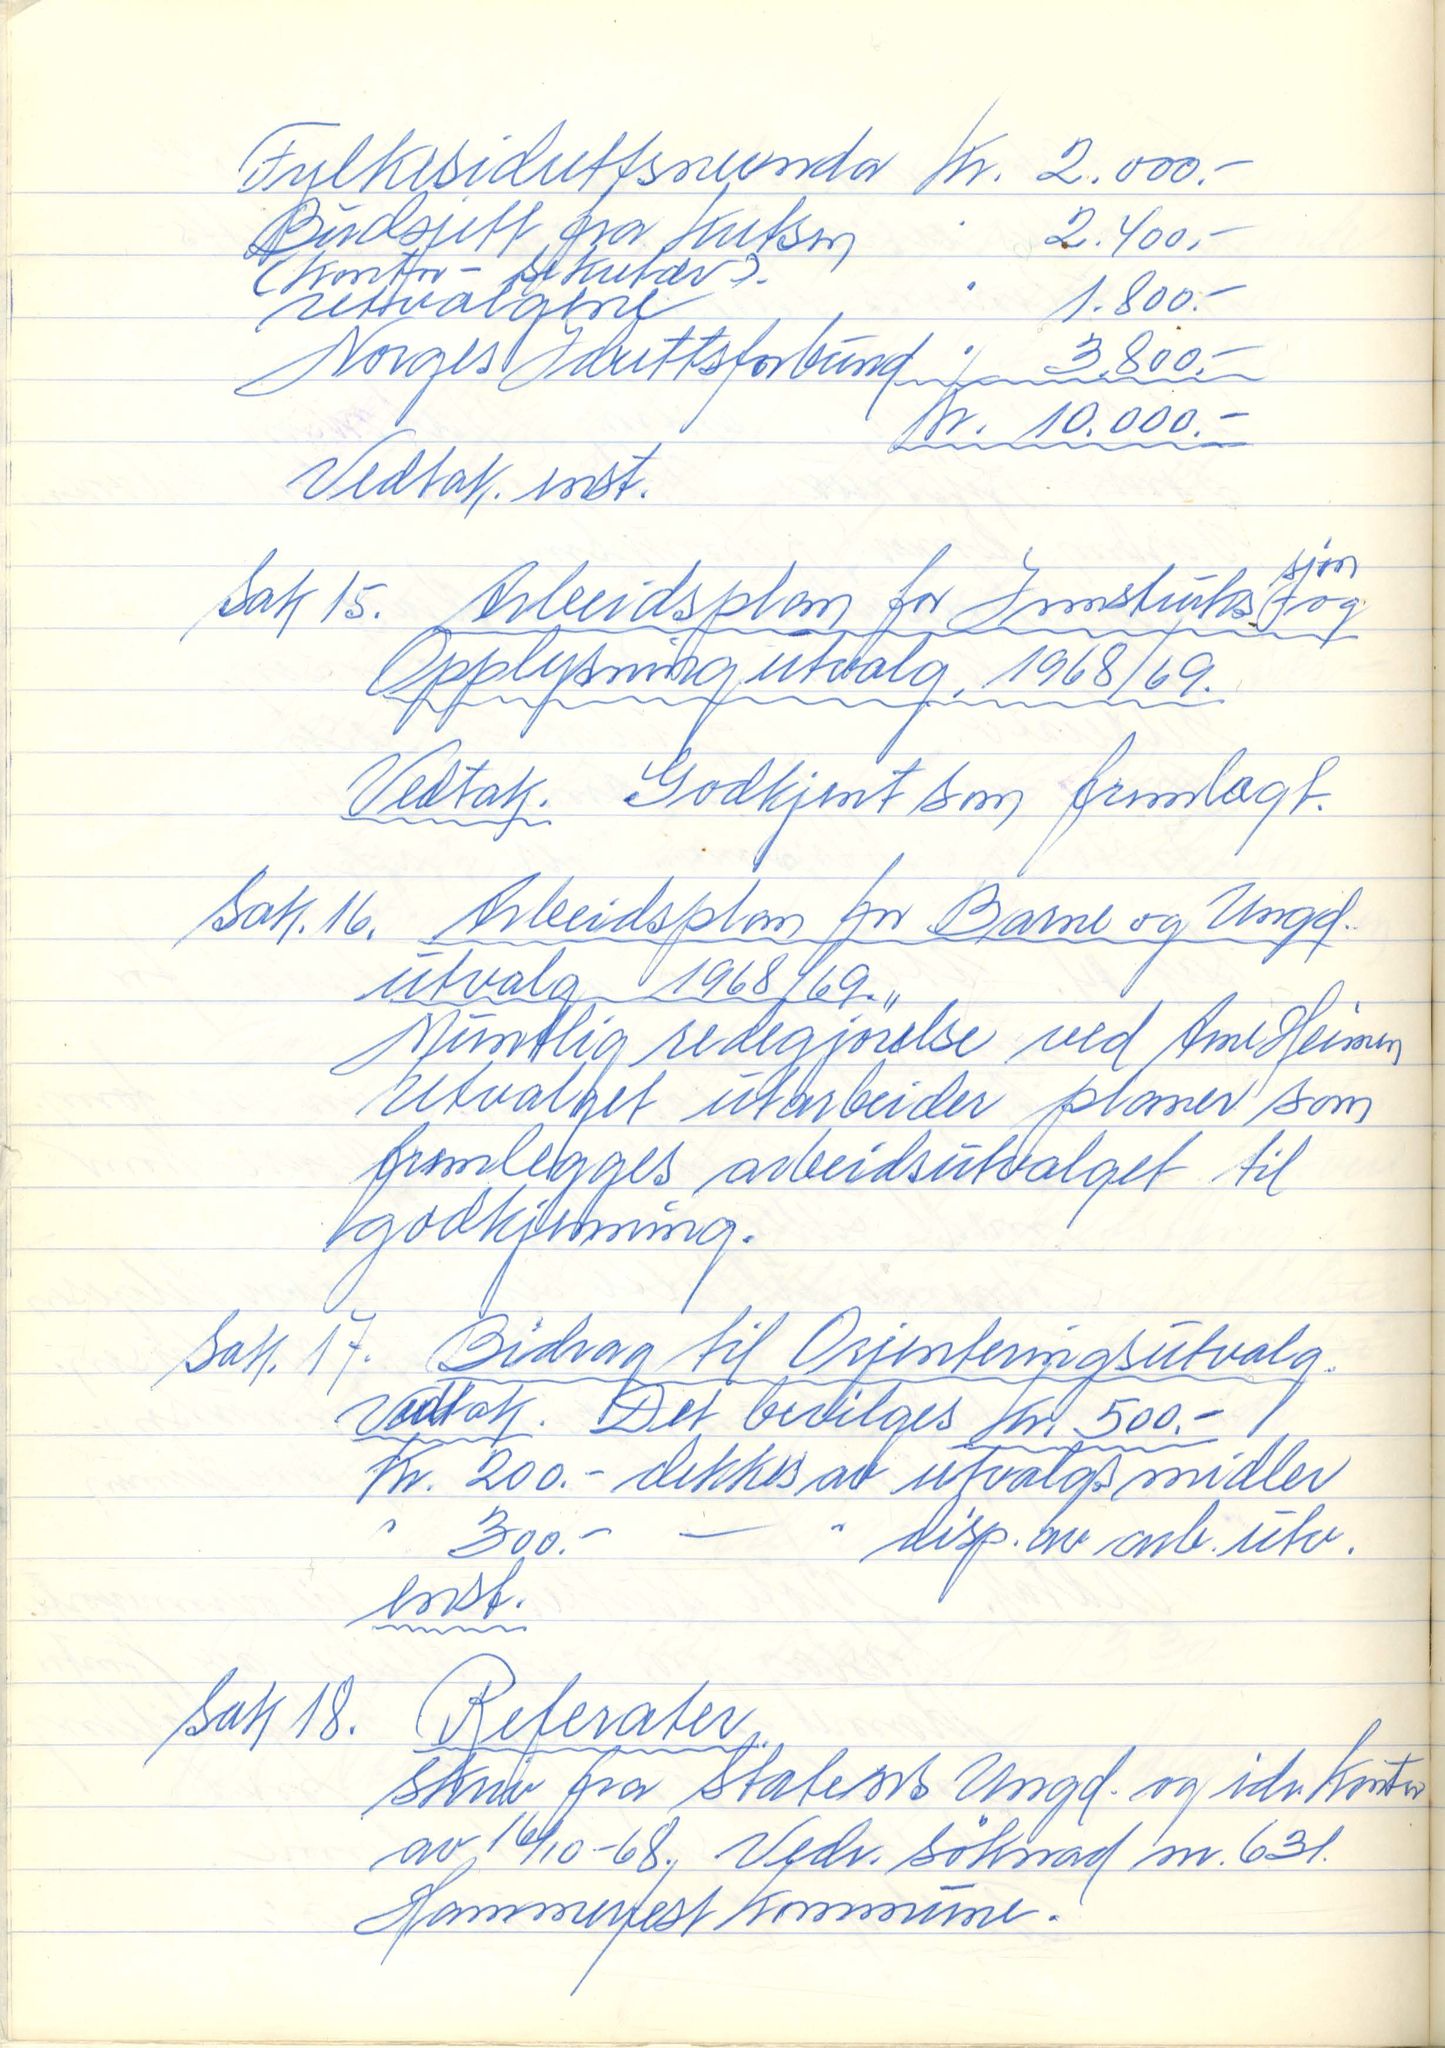 Fylkesidrettsnemnda kr. 2.000.-
Budsjett fra kretsen " 2.400.-
(kontor- sekretær).
utvalgene " 1.800.-
Norges Idrettsforbund " 3.800.-
kr. 10.000.-
Vedtak. enst.
Sak 15. Arbeidsplan for Instruksjon og
Opplysningutvalg. 1968/69.
Vedtak. Godkjent som fremlagt.
Sak. 16. Arbeidsplan for Barne og Ungd.
utvalg 1968/69.
Muntlig redegjørelse ved Arne Heimen
utvalget utarbeider planer som
fremlegges arbeidsutvalget til
godkjenning.
Sak. 17. Bidrag til Orienteringsutvalg.
Vedtak. Det bevilges kr. 500.-
kr. 200.- dekkes av utvalgsmidler
" 300.- — " disp. av arb. utv.
enst.
Sak 18. Referater.
Skriv fra Statens Ungd. og idr. kontor
av 16/10-68, Vedr. søknad nr. 631.
Hammerfest kommune.